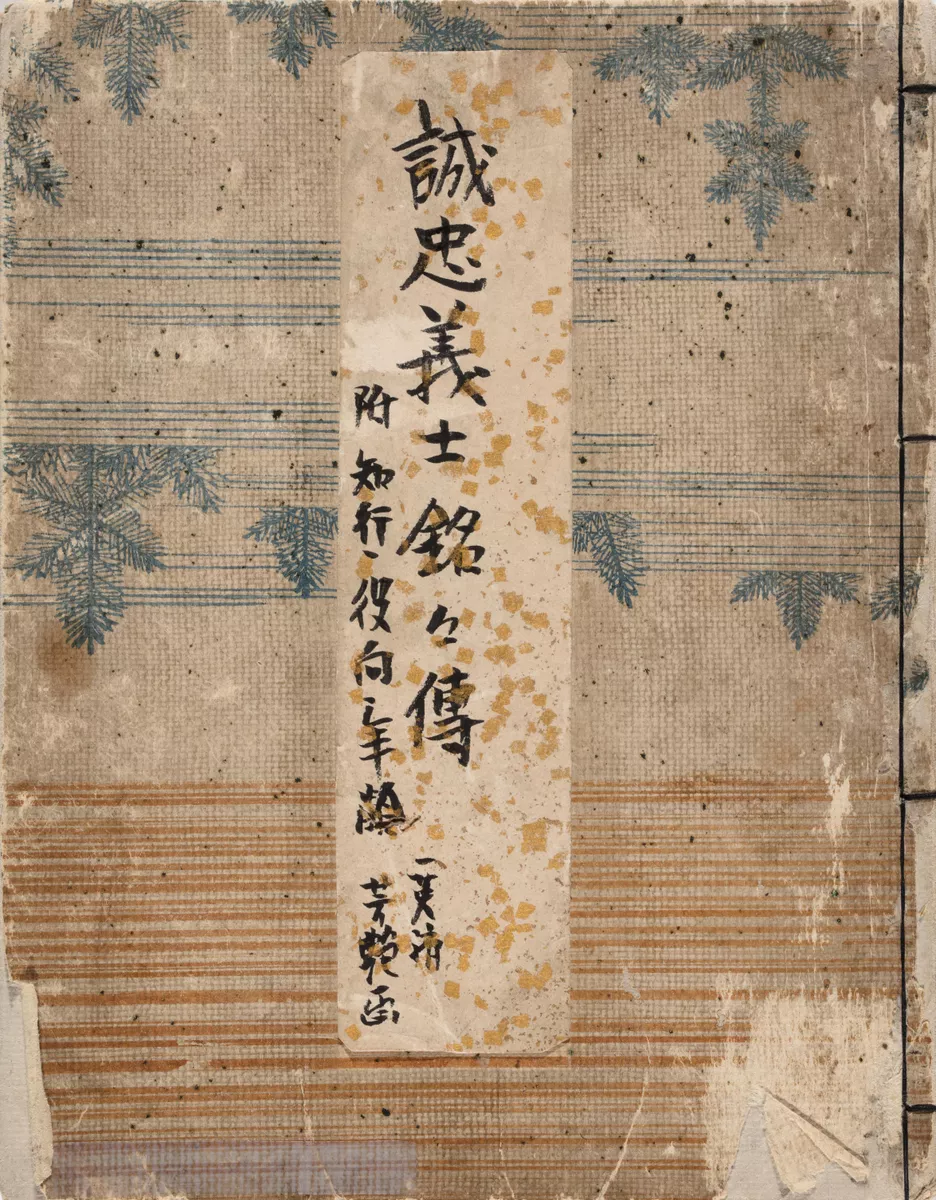 誠忠義士銘々傳
附 知行、役向之年齢
一英斎
芳艶画